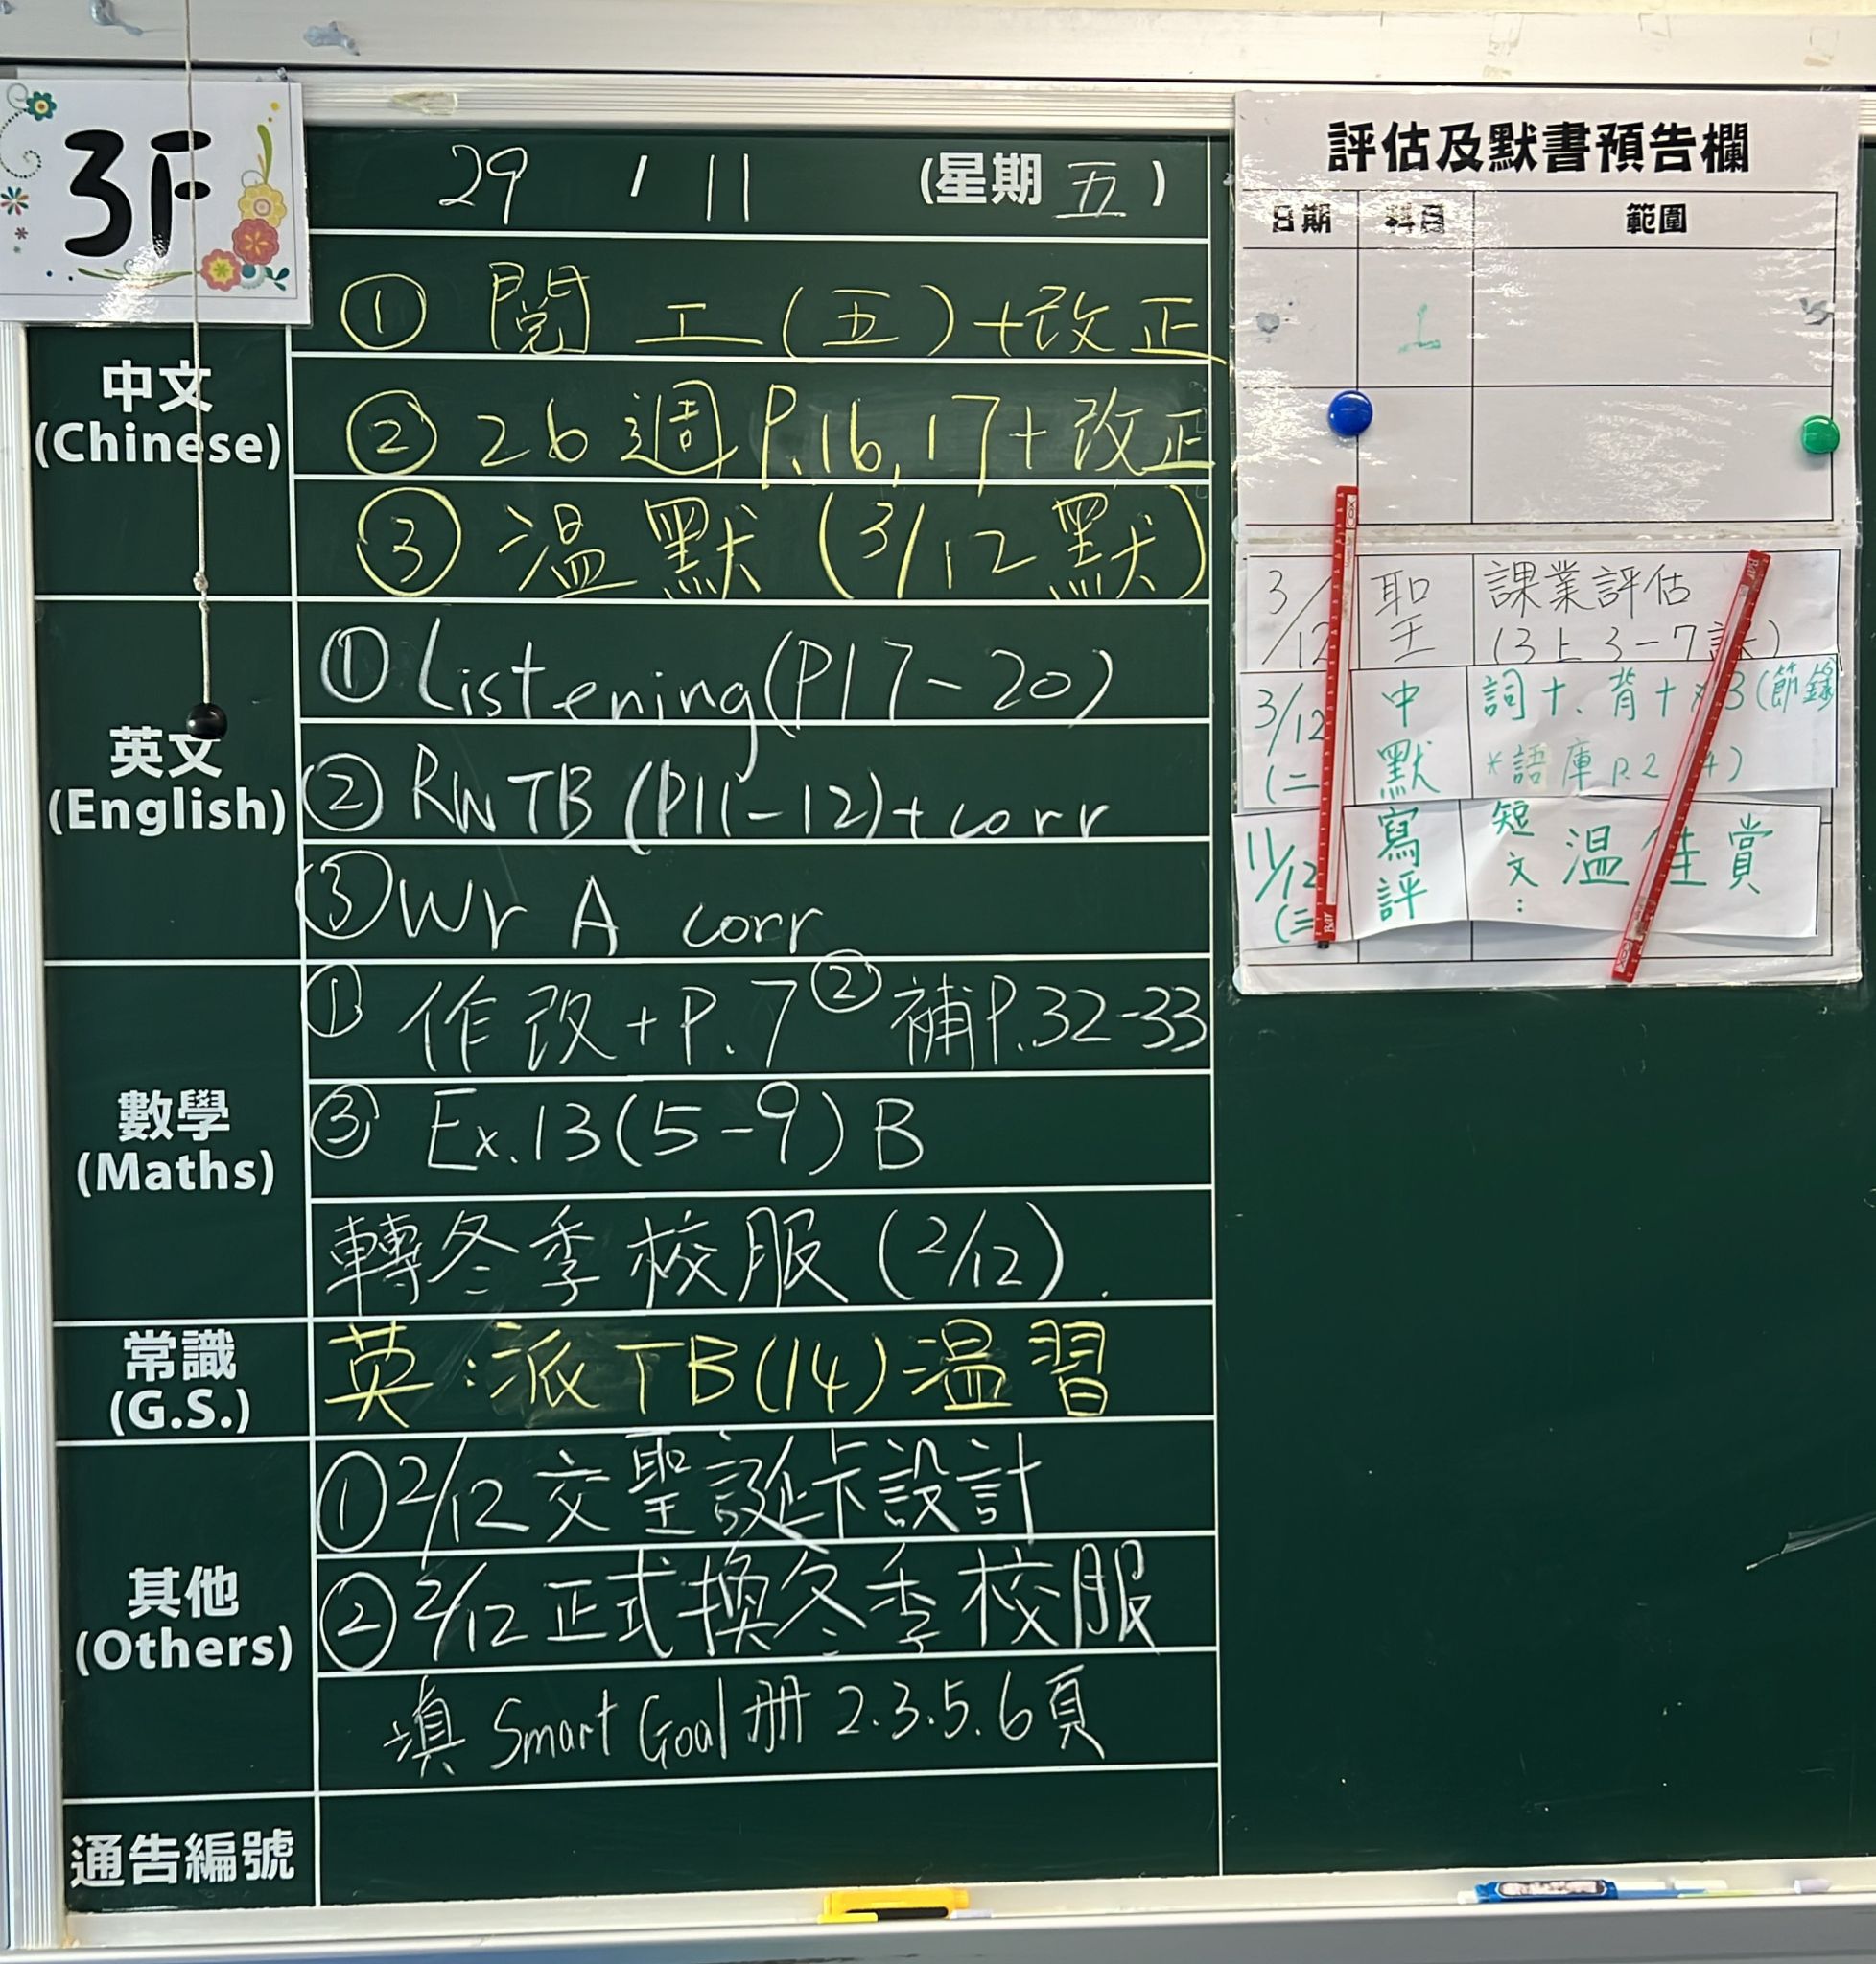 3F
29 / 11 (星期 五 )
中文
(Chinese)
① 閱 工 (五) + 改正
② 26 週 P.16, 17 + 改正
③ 溫 默 (3/12 默)
英文
(English)
① Listening (P17 - 20)
② RW TB (P11 - 12) + corr
③ Wr A corr
數學
(Maths)
① 作 改 + P. 7 ② 補 P.32-33
③ Ex.13 (5 - 9) B
轉 冬 季 校 服 (2/12).
常識
(G.S.)
英 : 派 TB (14) 溫 習
其他
(Others)
① 2/12 交 聖誕卡設計
② 2/12 正式換冬季校服
填 Smart Goal 册 2.3.5.6頁
通告編號
評估及默書預告欄
日期 科目 範圍
3/12 聖 課業評估
(3上 3-7課)
3/12 (二 中默 詞十、背十 3 (節錄
*語庫 P.2 4)
11/12 (三 寫評 短文: 溫 佳 賞